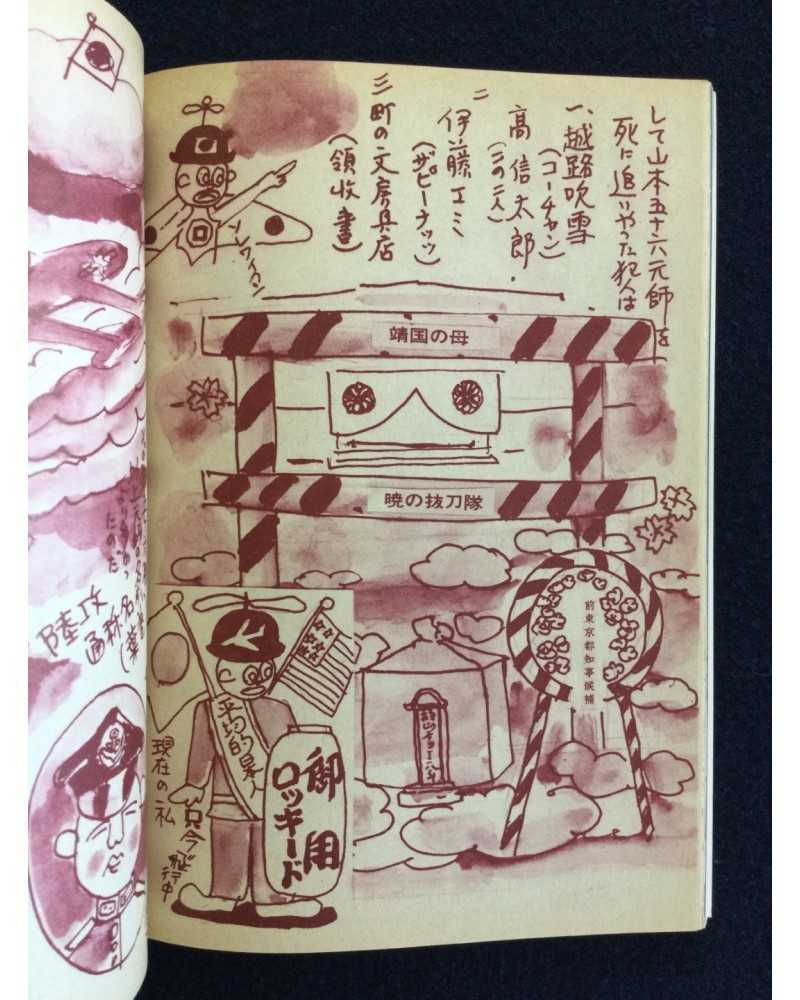 して山本五十六元師を
死に追いやった犯人は
一、越路吹雪
（コーチャン）
高信太郎．
（この二人）
二 伊藤エミ
（ザピーナッツ）
三 町の文房具店
（領収書）
靖国の母
暁の抜刀隊
前東京都知事候補
平均的日本人
御用
ロッキード
現在の私
只今飛行中
陸攻
通称名